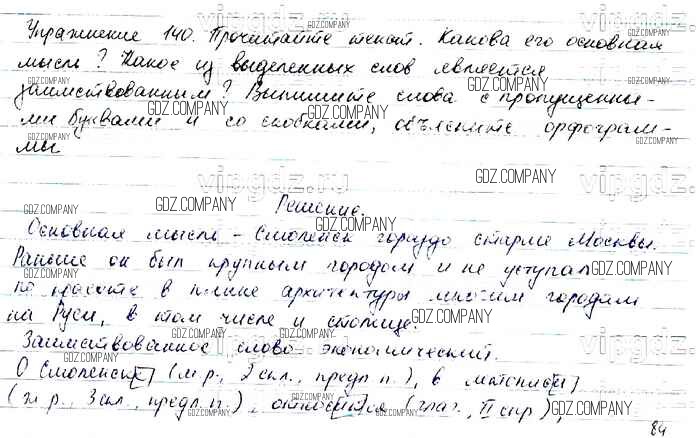 Упражнение 140. Прочитайте текст. Какова его основная
мысль? Какое из выделенных слов является
заимствованным? Выпишите слова с пропущенны-
ми буквами и со скобками, объясните орфограм-
мы
Решение.
Основная мысль - Смоленск гораздо старше Москвы.
Раньше он был крупным городом и не уступал
по красоте в плане архитектуры многим городам
на Руси, в том числе и столице.
Заимствованное слово - экономический.
О Смоленск[е] (м.р., 2 скл., предл п.), в летопис[и]
(ж.р., 3 скл., предл. п.), относ[и]тся (глаг., II спр),
84
vipgdz.ru
GDZ.COMPANY